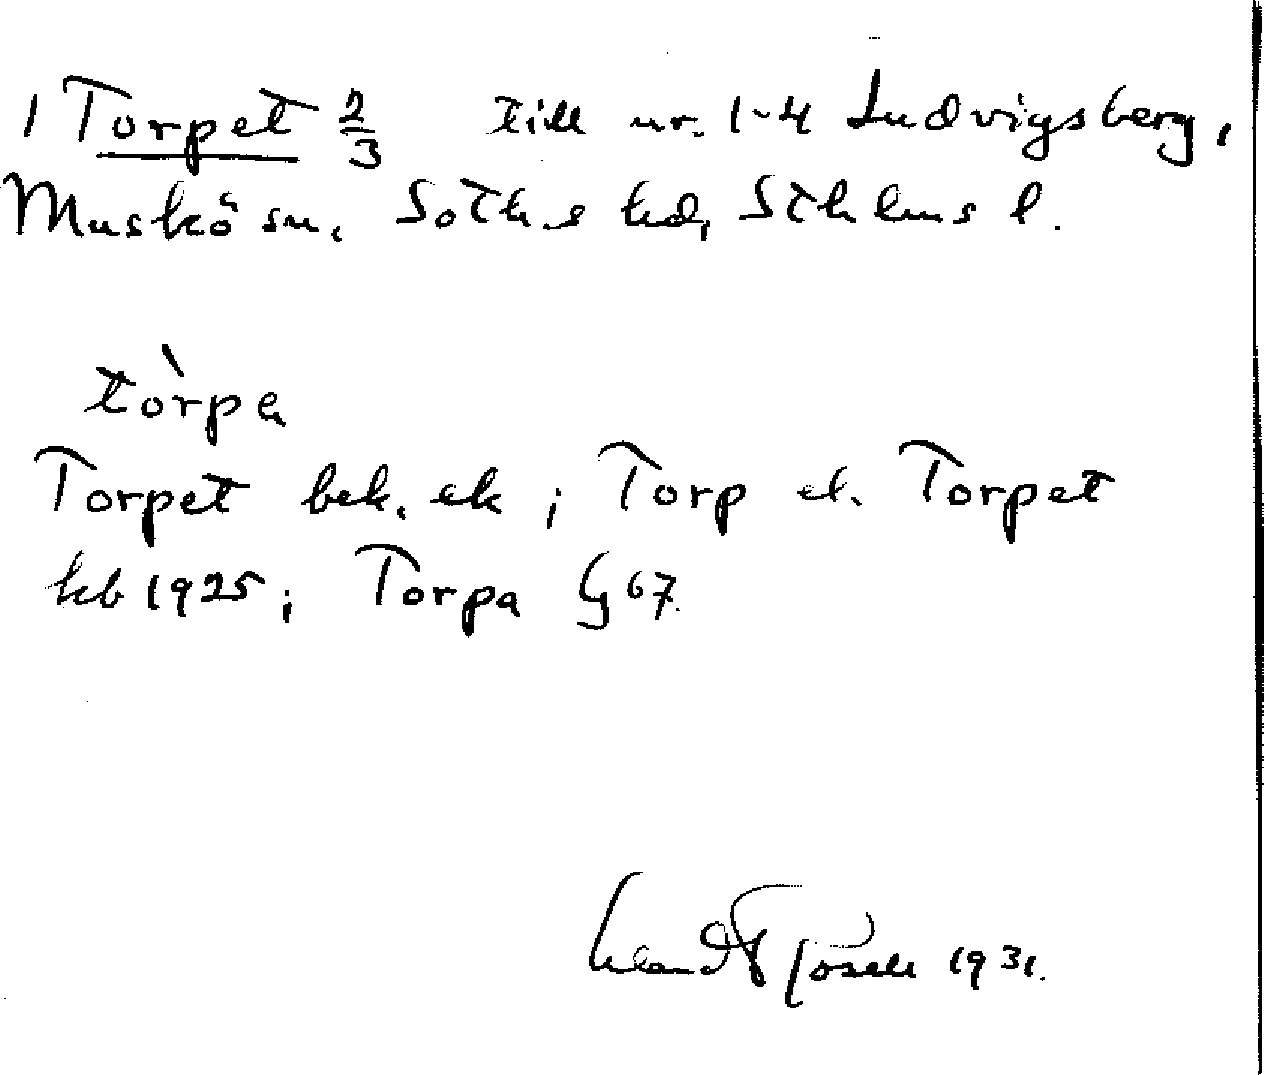 1 Torpet 2/3 till nr. 1-4 Ludvigsberg,
Muskö sn. Soth s hd, Sthlms l.
tòrpa
Torpet bek. ek ; Torp el. Torpet
kb 1925 ; Torpa G 67.
1931.